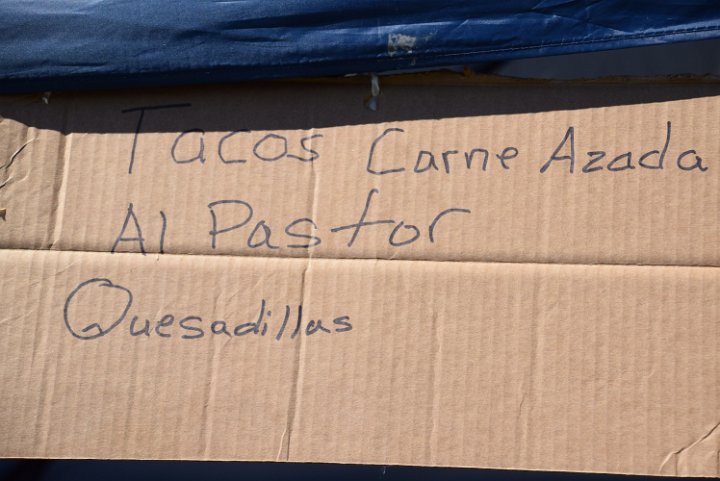 Tacos Carne Azada
Al Pastor
Quesadillas